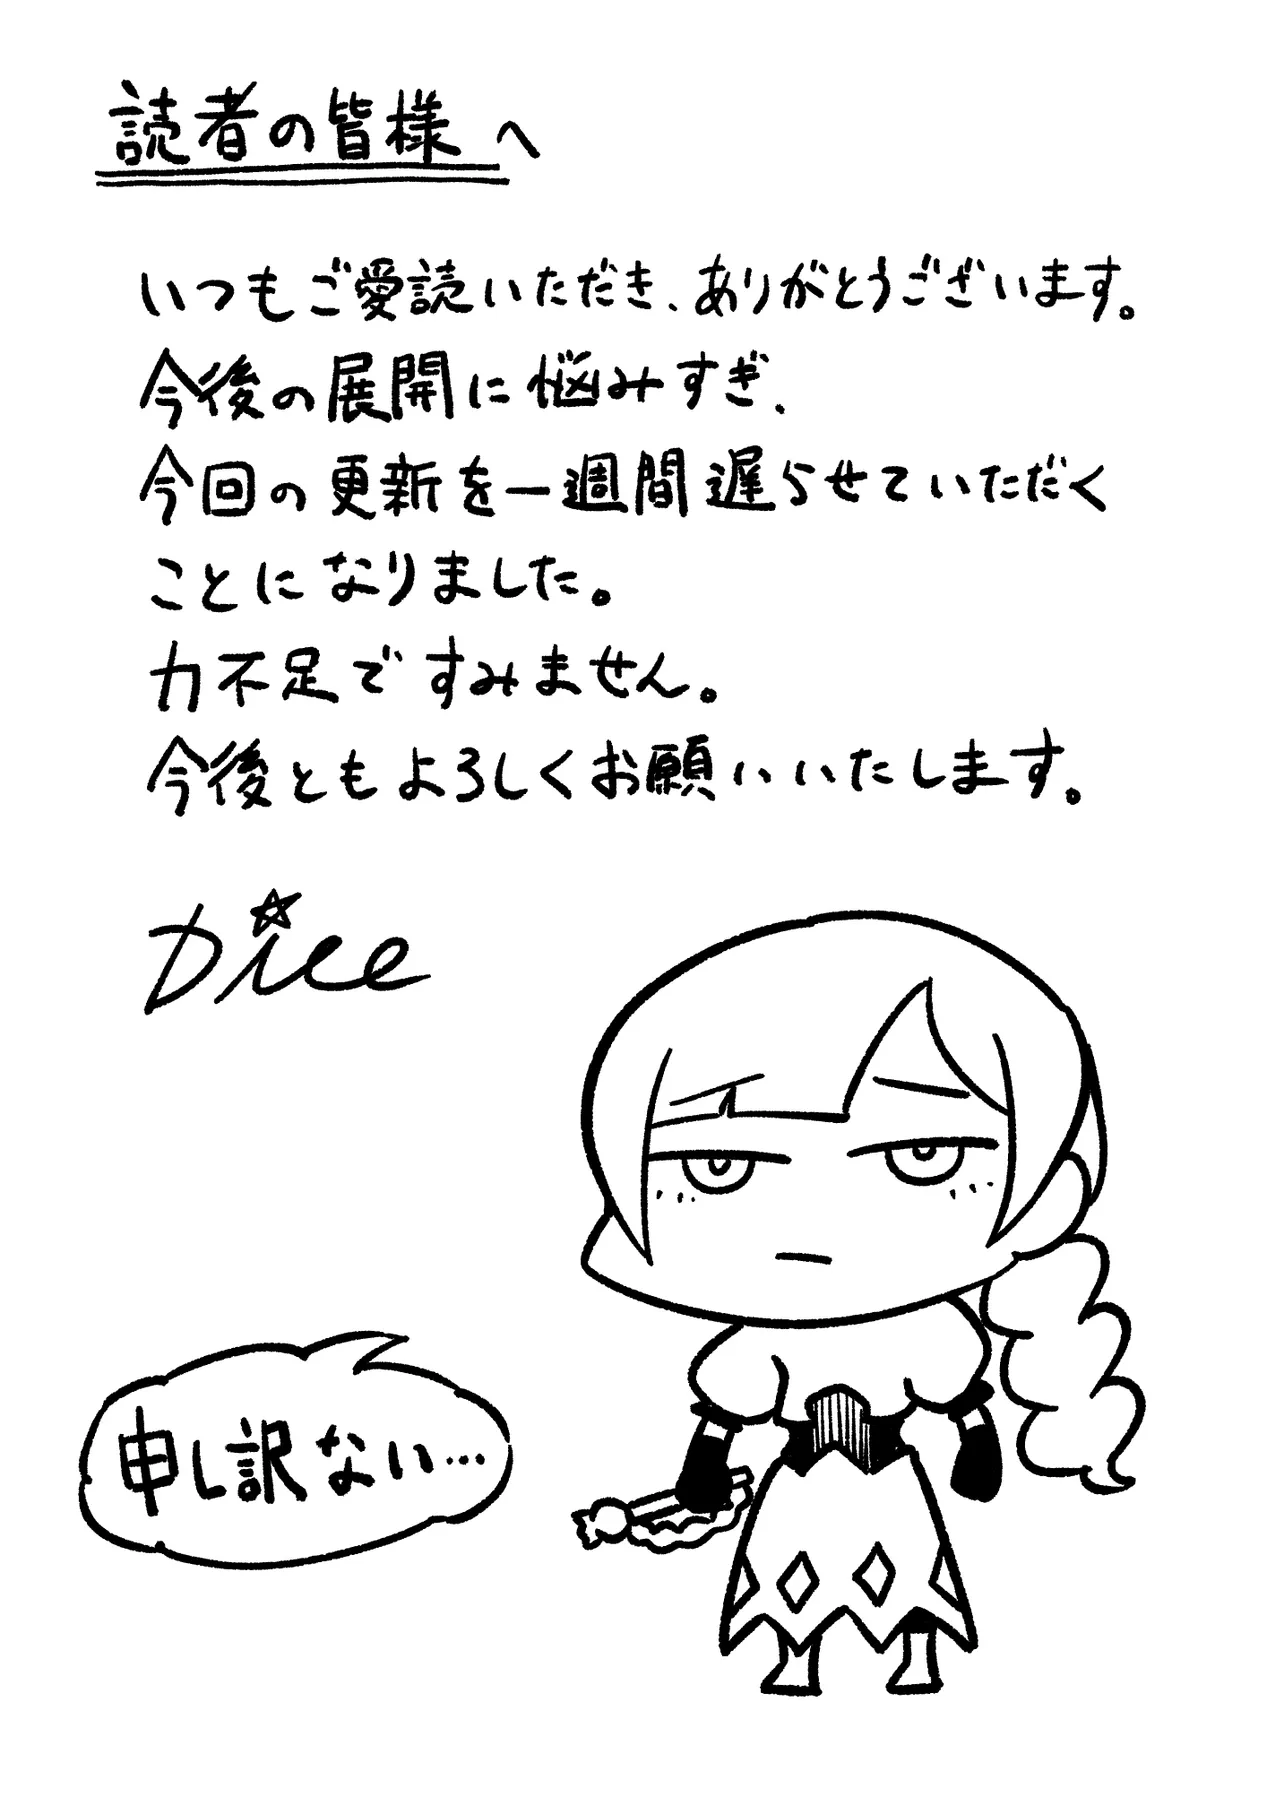 読者の皆様へ
いつもご愛読いただき、ありがとうございます。
今後の展開に悩みすぎ、
今回の更新を一週間遅らせていただく
ことになりました。
力不足ですみません。
今後ともよろしくお願いいたします。
Dice
申し訳ない…